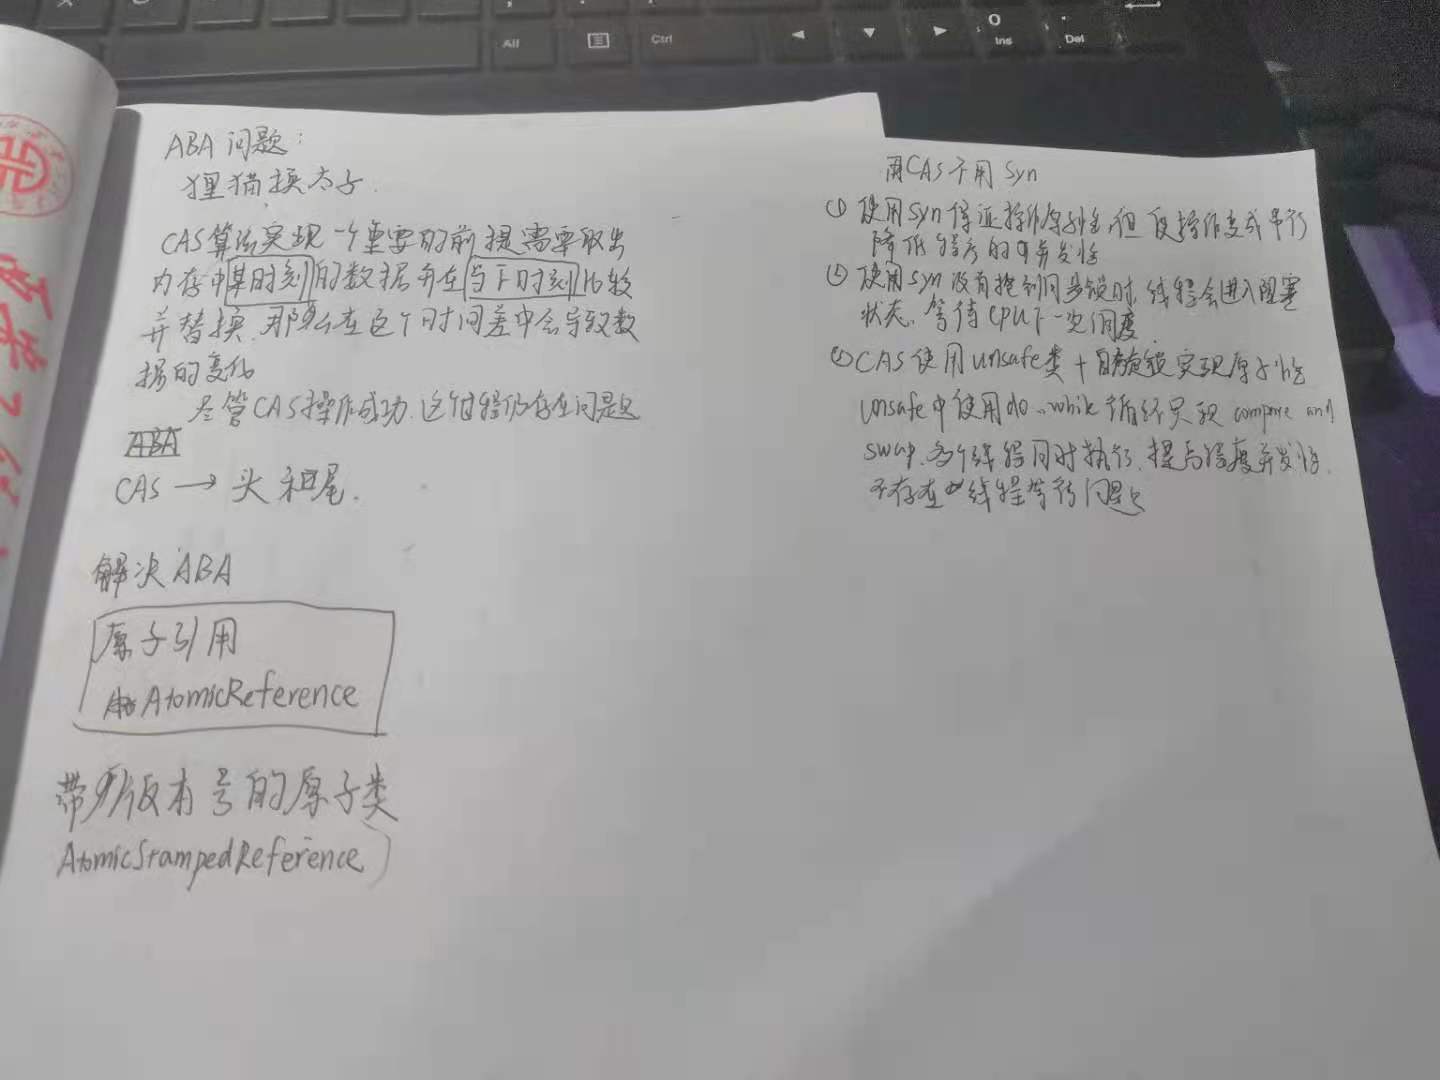 Alt
Ctrl
0
Ins
.
Del
ABA 问题:
狸猫换太子.
CAS算法实现一个重要的前提需要取出
内存中某时刻的数据并在当下时刻比较
并替换.那么在这个时间差中会导致数
据的变化
尽管CAS操作成功.这个过程仍存在问题
ABA
CAS → 头和尾.
解决ABA
原子引用
AtomicReference
带版本号的原子类
AtomicStampedReference
用CAS不用 Syn
① 使用Syn保证操作原子性,但使操作变成串行
降低程序的并发性
② 使用Syn没有抢到同步锁时,线程会进入阻塞
状态,等待CPU下一次调度
CAS使用unsafe类+自旋锁实现原子性
unsafe中使用do..while循环实现 compare and
swap.多个线程同时执行.提高 并发性.
不存在线程等待问题